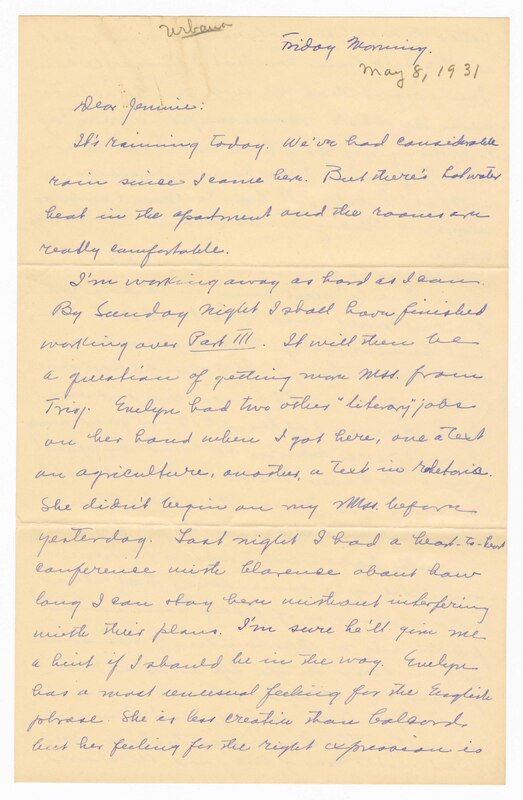 Urbana
Friday Morning.
May 8, 1931
Dear Jennie:
It's raining today. We've had considerable
rain since I came here. But there's hot water
heat in the apartment and the rooms are
really comfortable.
I'm working away as hard as I can.
By Sunday night I shall have finished
working over Part III. It will then be
a question of getting more Mss. from
Evelyn had two other "literary" jobs
on her hand when I got here, one a text
on agriculture, another, a text in rhetoric.
She didn't begin on my Mss. before
yesterday. Last night I had a heart-to-heart
conference with Clarence about how
long I can stay here without interfering
with their plans. I'm sure he'll give me
a hint if I should be in the way. Evelyn
has a most unusual feeling for the English
phrase. She is less creative than Colcord,
but her feeling for the right expression is